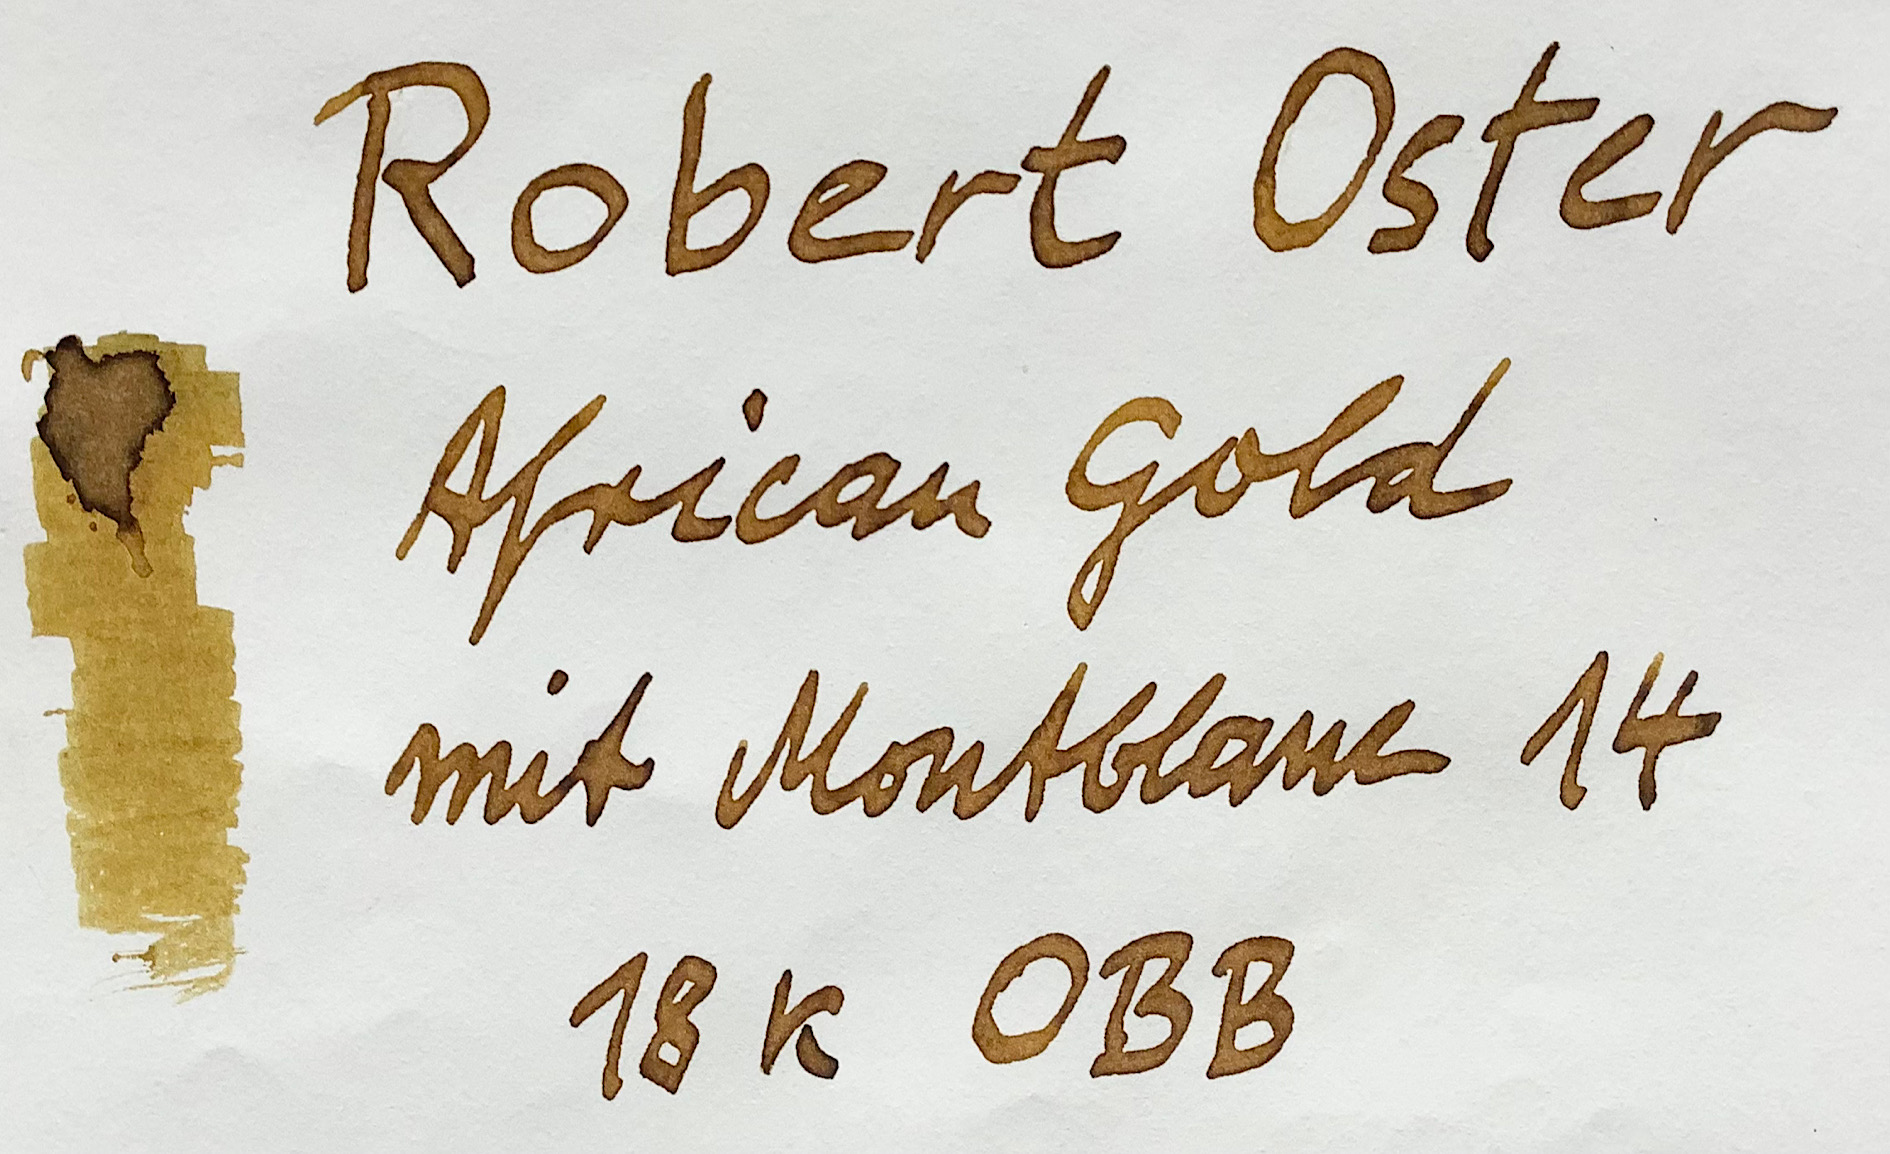 Robert Oster
African Gold
mit Montblanc 14
18 K OBB